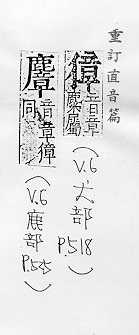 重訂直音篇
獐音章麋屬
(V.6 犬部 P.518)
麞音章獐同
(V.6 鹿部